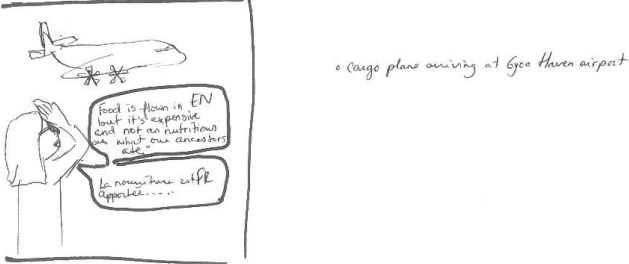 Food is flown in EN
but it's expensive
and not as nutritious
as what our ancestors
ate."
La nourriture est FR
apportée.....
o cargo plane arriving at Gjoa Haven airport